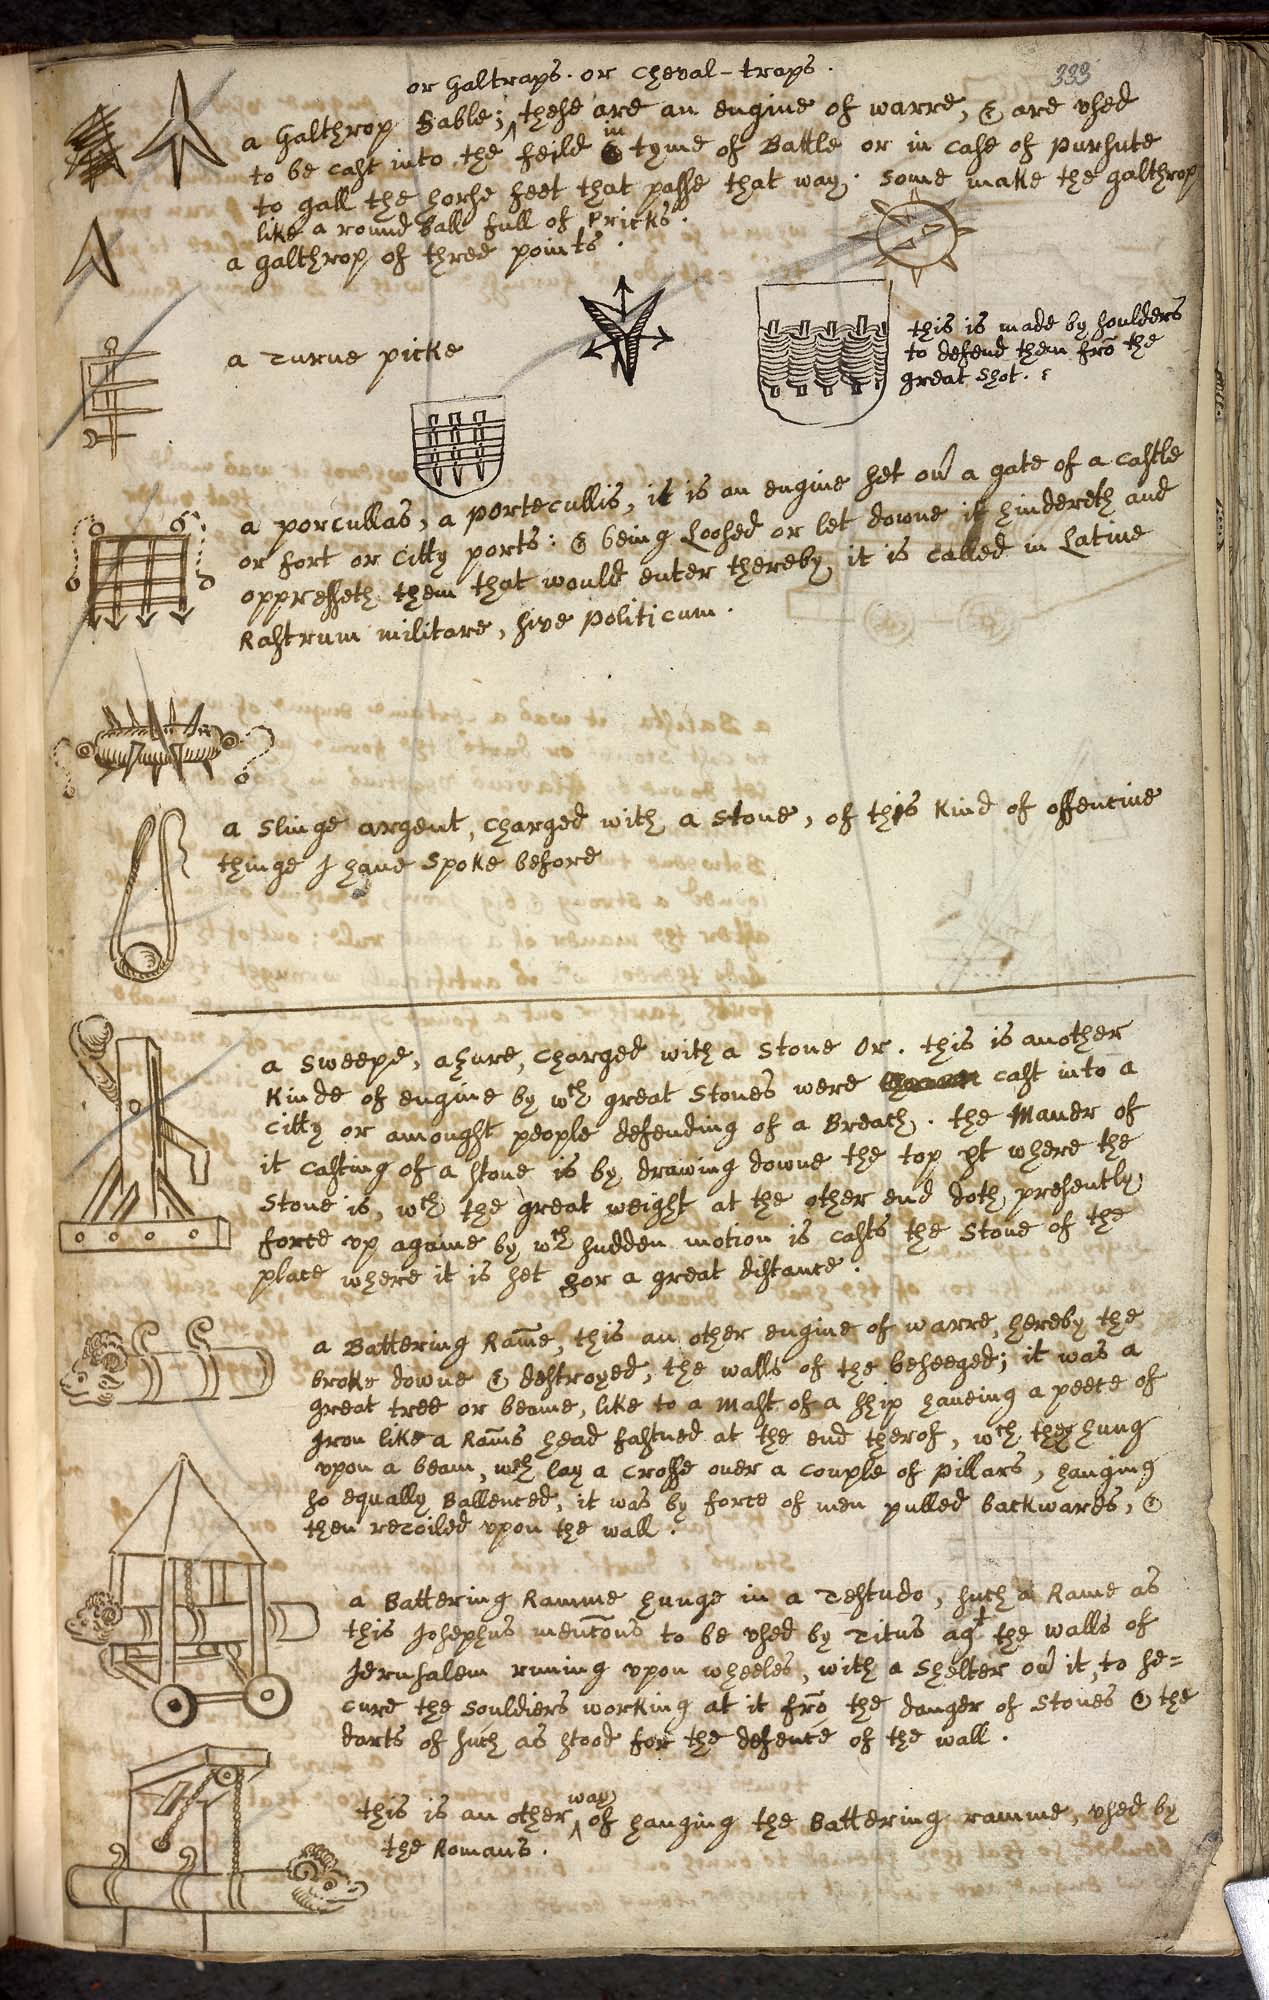 333
or Galtraps. or Cheval-traps.
a Galthrop Sable; these are an engine of warre, & are vsed
to be cast into the feild in tyme of Battle or in case of pursute
to gall the horse feet that passe that way. Some make the galthrop
like a round Ball full of Pricks.
a galthrop of three points.
this is made by shoulders
to defend them frō the
great shot.
a Turne picke
a porcullas, a portecullis, it is an engine set on a gate of a castle
or fort or Citty ports: & being Loosed or let downe it hindereth and
oppresseth them that would enter thereby, it is called in Latine
Rastrum militare, sive politicum.
a Slinge argent, charged with a Stone, of this Kind of offencive
thinge I have Spoke before
a Sweepe, azure, Charged with a Stone Or. this is another
Kinde of engine by wth great Stones were cast into a
Citty or amongst people defending of a Breach. the Maner of
it casting of a stone is by drawing downe the top pt where the
Stone is, wth the great weight at the other end doth presently
force vp againe by wth sudden motion is casts the Stone of the
place where it is set for a great distance.
a Battering Ram̄e, this an other engine of warre, hereby the
broke downe & destroyed, the walls of the beseeged; it was a
great tree or beame, like to a Mast of a ship haveing a peece of
Iron like a Ram̄s head fastned at the end therof, wth they hung
vpon a beam, wth lay a crosse over a couple of pillars, hanging
so equally Ballenced, it was by force of men pulled backwards, &
then recoiled vpon the wall.
a Battering Ramme hunge in a Testudo, such a Rame as
this Josephus mencōns to be vsed by Titus agt the walls of
Jerusalem runing vpon wheeles, with a Shelter on it, to se=
cure the Souldiers working at it frō the danger of Stones & the
darts of such as stood for the defence of the wall.
this is an other way of hanging the Battering ramme, vsed by
the Romans.